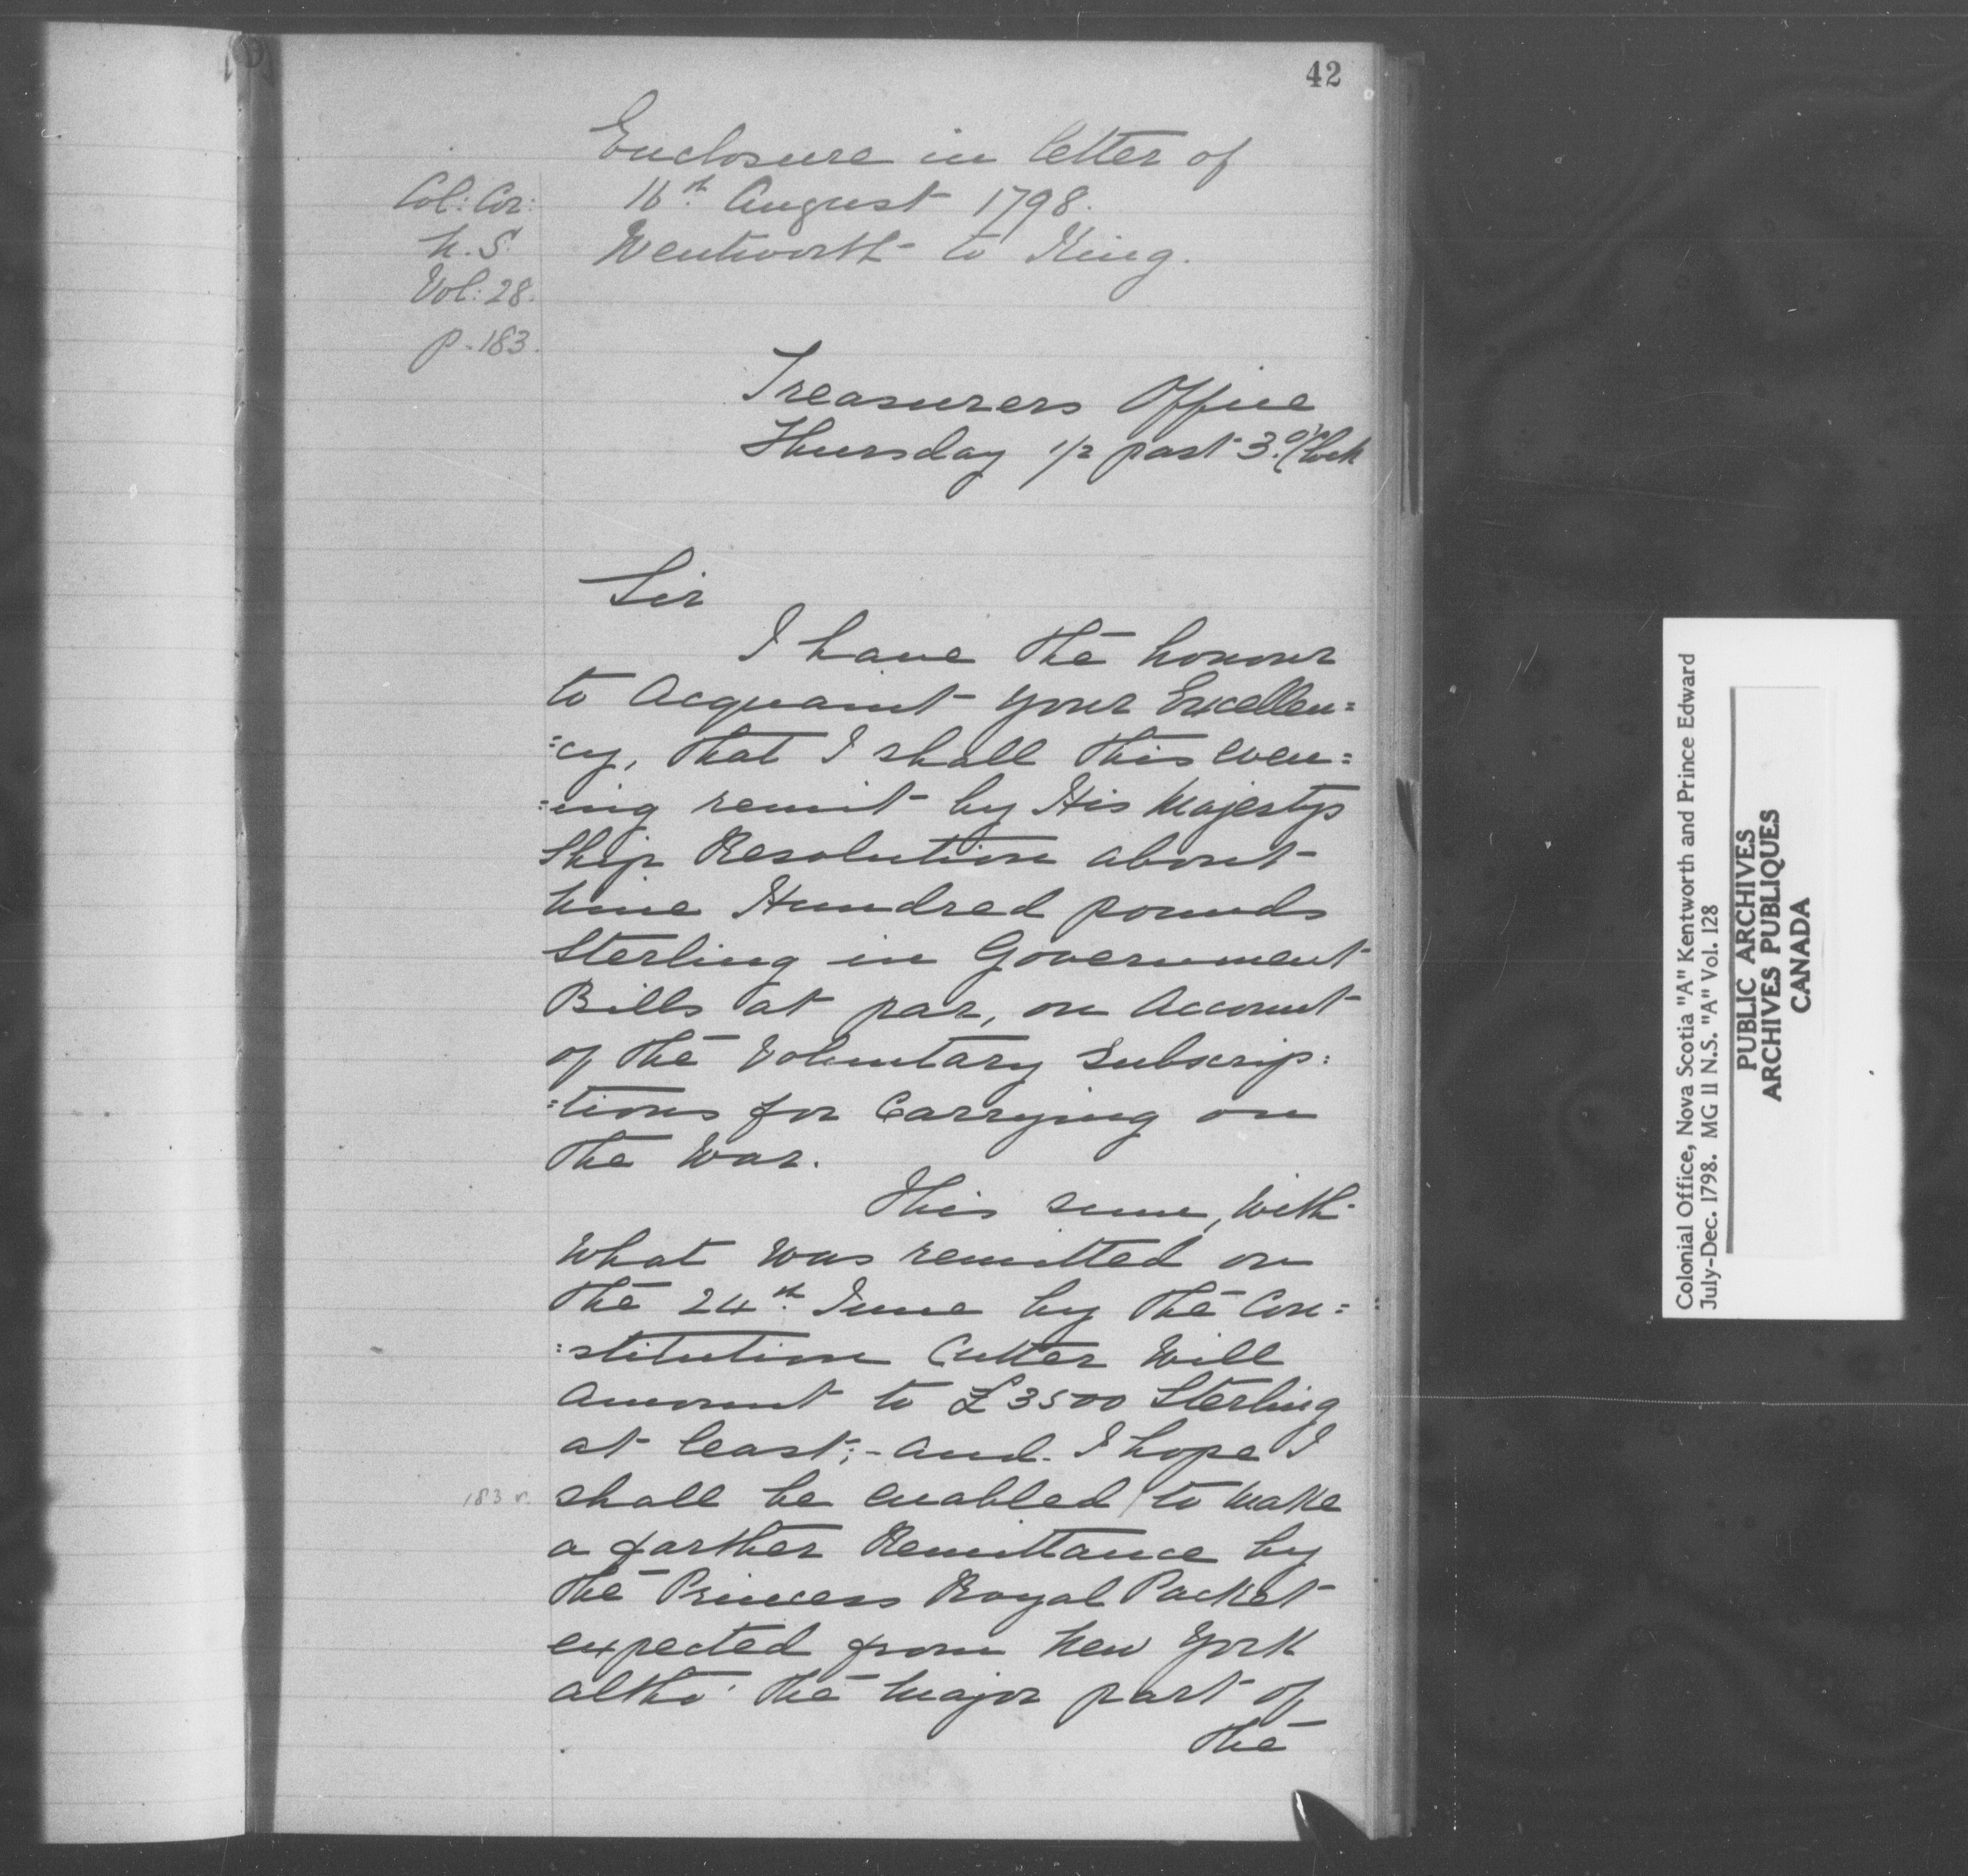 42
Enclosure in letter of
16th August 1798.
Wentworth to King.
Col: Cor:
N.S.
Vol: 28.
p. 183.
Treasurers Office
Thursday 1/2 past 3 o'Clock
Sir
I have the honour
to Acquaint your Excellen=
=cy, that I shall this even=
=ing remit by His Majestys
Ship Resolution about
Nine Hundred pounds
Sterling in Government
Bills at par, on Account
of the Voluntary Subscrip:
=tions for Carrying on
the War.
This sum, with
what was remitted on
the 24th June by the Con=
=stitution Cutter Will
amount to £3500 Sterling
at least;- and I hope I
183 v. shall be enabled / to make
a farther Remittance by
the Princess Royal Packet
expected from New York
altho' the major part of
the
Colonial Office, Nova Scotia "A" Kentworth and Prince Edward
July-Dec. 1798. MG 11 N.S. "A" Vol. 128
PUBLIC ARCHIVES
ARCHIVES PUBLIQUES
CANADA